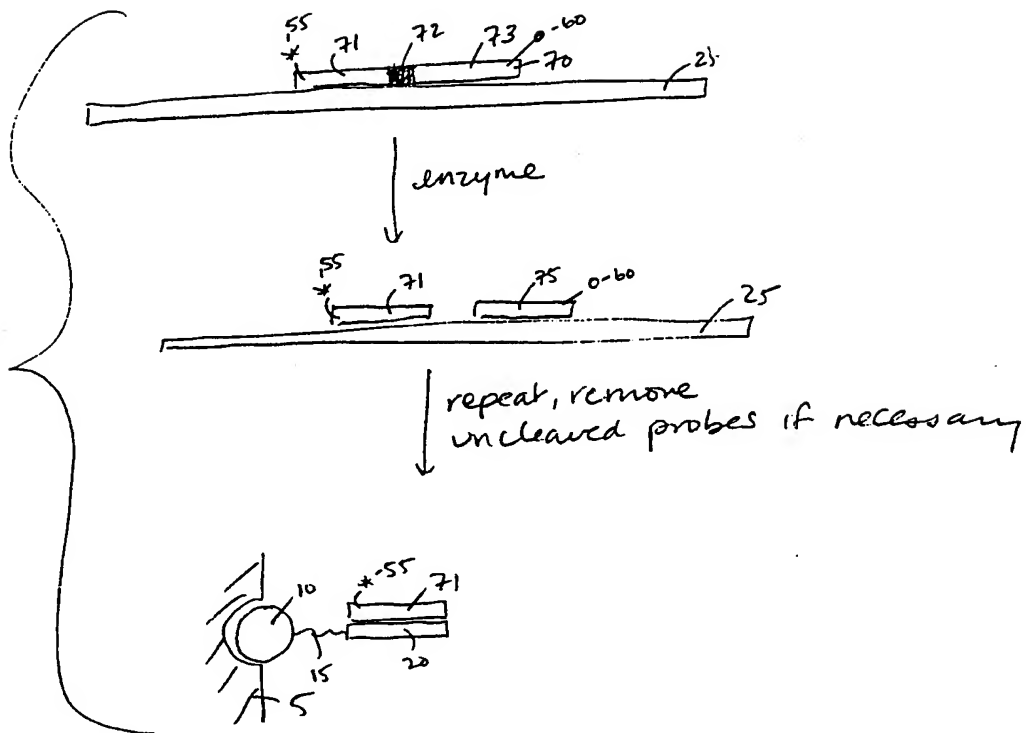 *-55 71 72 73 -60
70 25
enzyme
*-55 71 75 0-60
25
repeat, remove
uncleaved probes if necessary
10 *-55 71
15 20
5